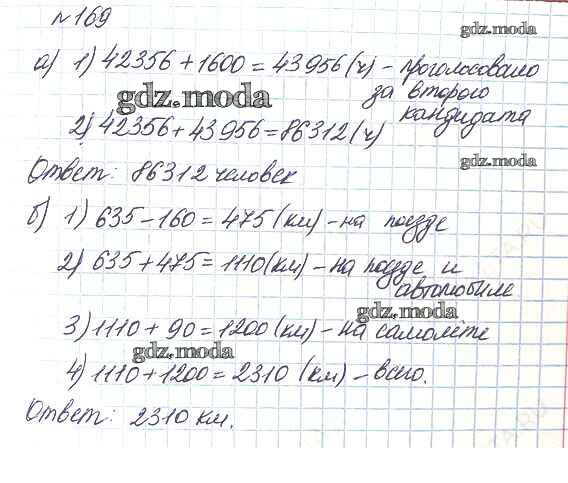 №169
gdz.moda
а) 1) 42356 + 1600 = 43956 (ч) - проголосовало
за второго
кандидата
gdz.moda
2) 42356 + 43956 = 86312 (ч)
gdz.moda
Ответ: 86312 человек
б) 1) 635 - 160 = 475 (км) - на поезде
2) 635 + 475 = 1110 (км) - на поезде и
автомобиле
gdz.moda
3) 1110 + 90 = 1200 (км) - на самолёте
gdz.moda
4) 1110 + 1200 = 2310 (км) - всего.
Ответ: 2310 км.